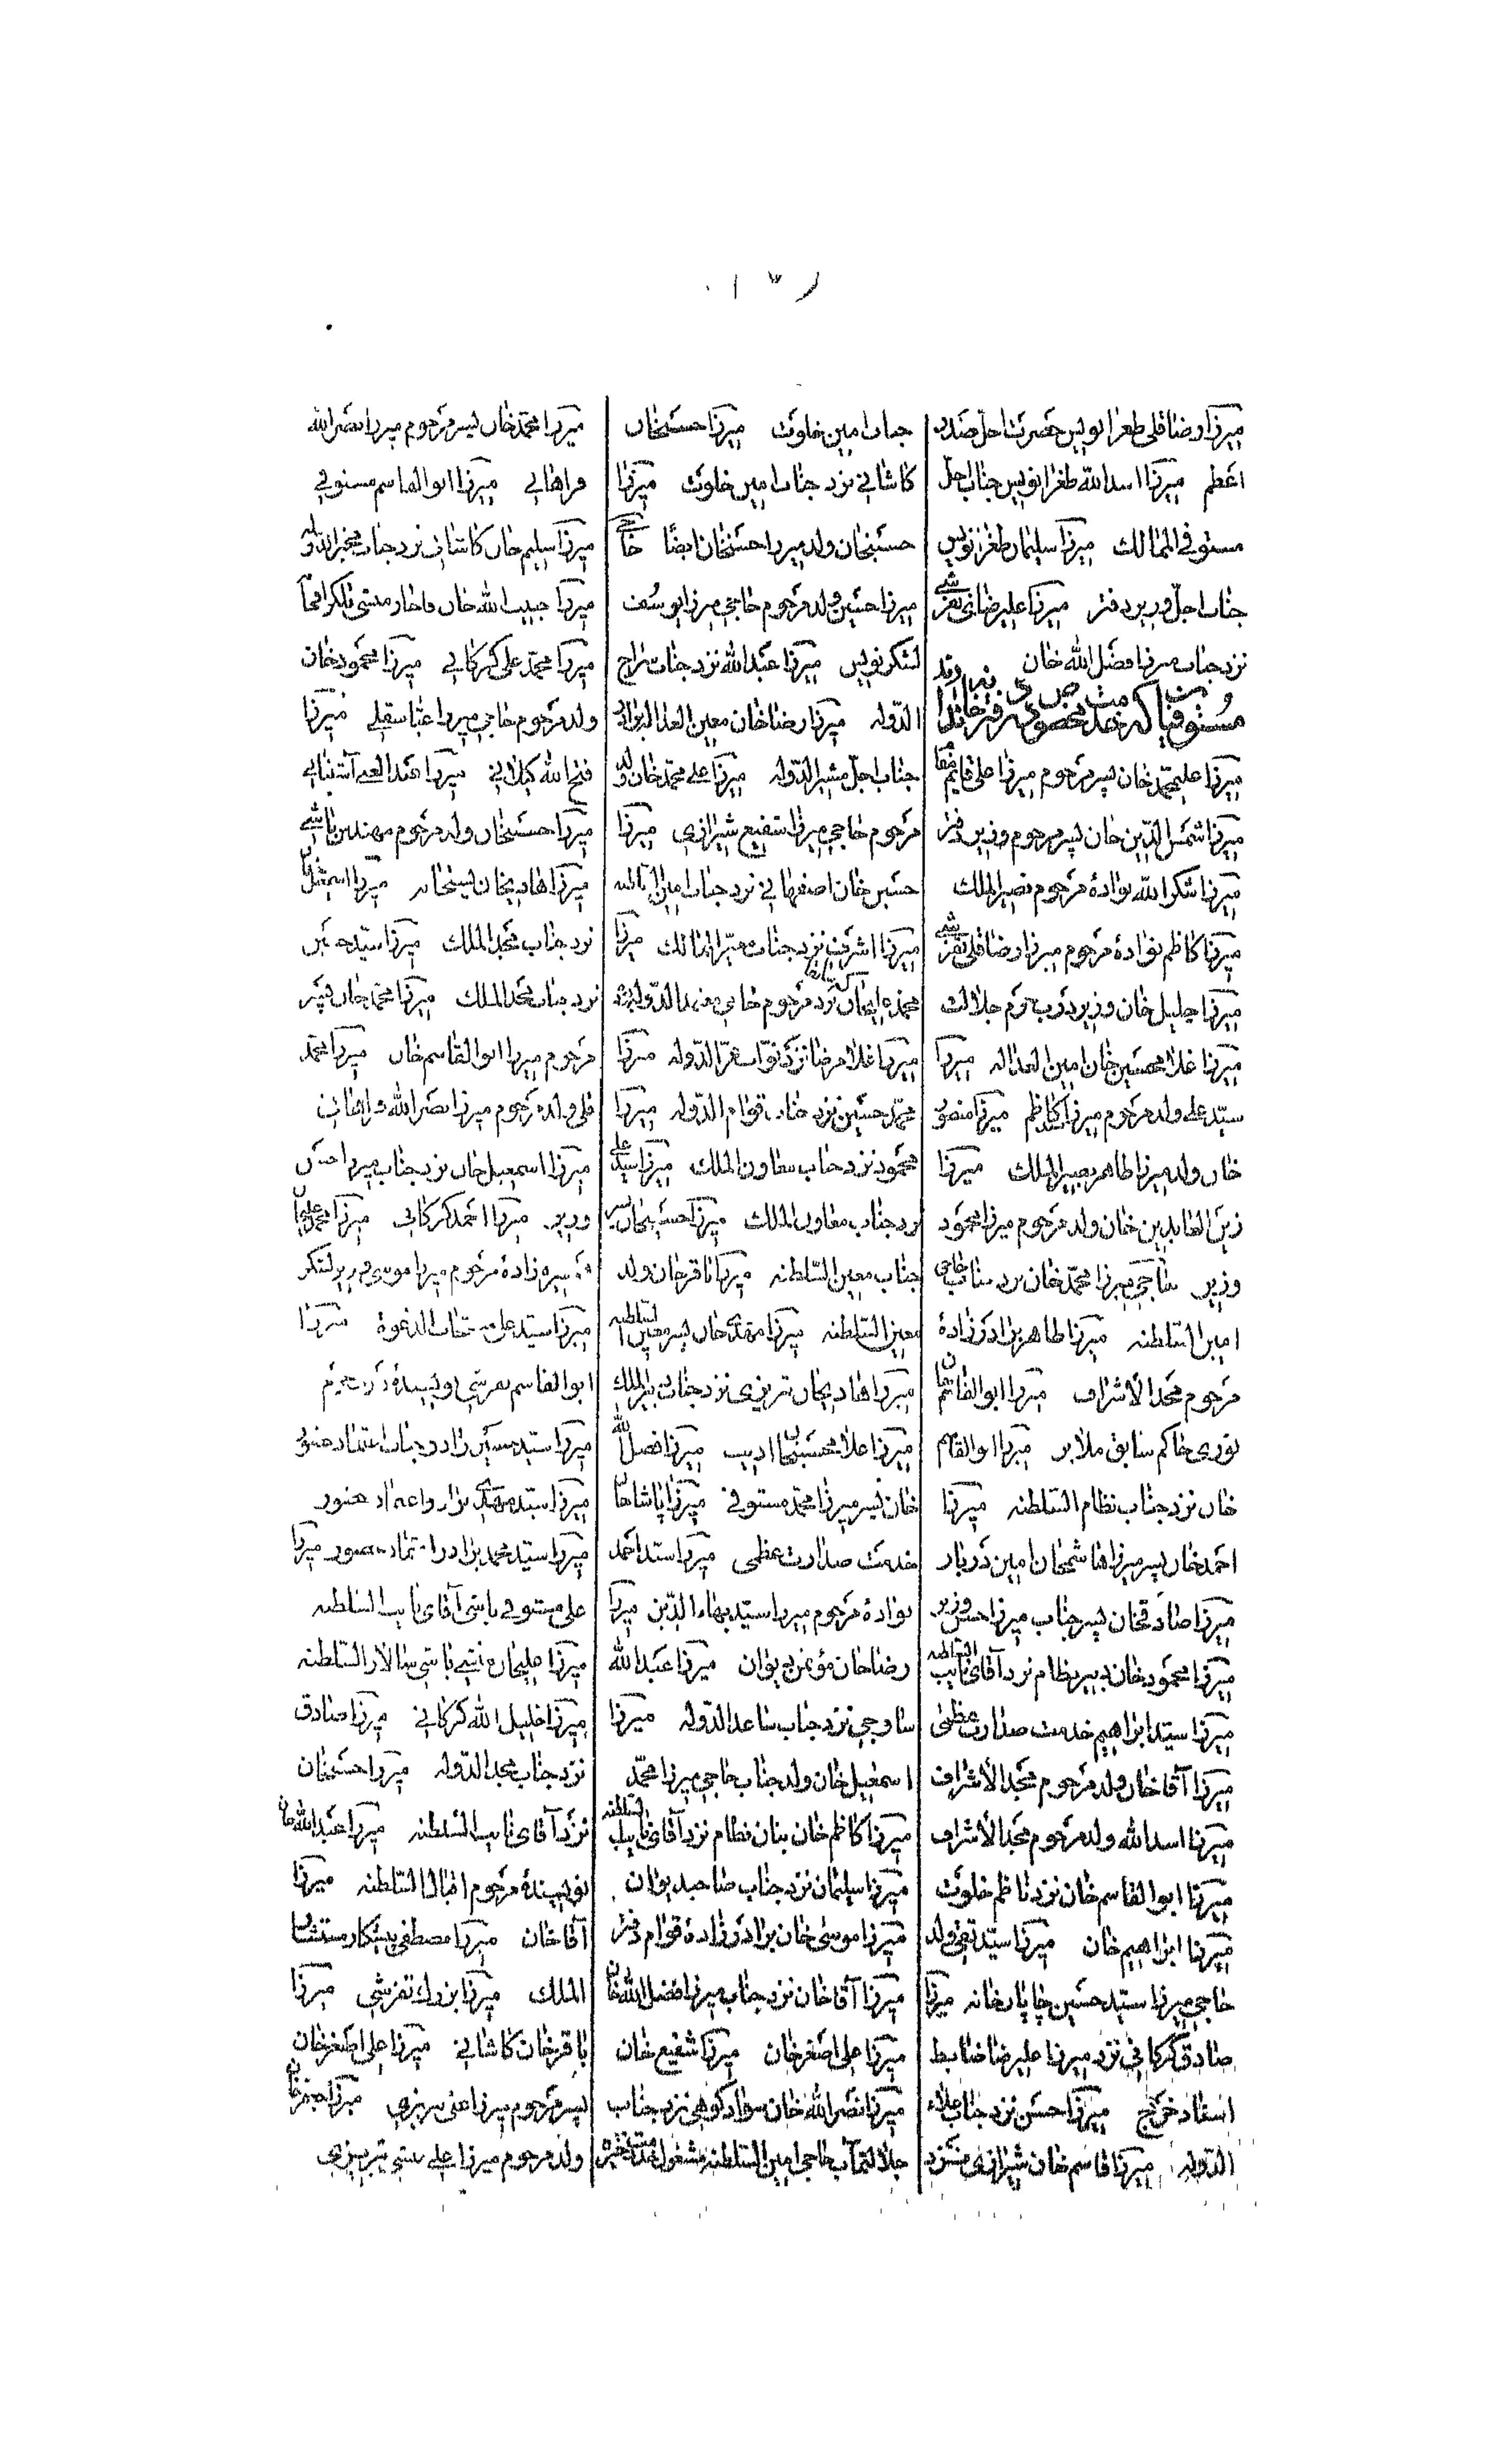 میرزا رضا قلی طغرانویس حضرت اجل صدر
اعظم میرزا اسدالله طغرانویس جناب اجل
مستوفی الممالک میرزا سلیمان طغرانویس
جناب اجل وزیر دفتر میرزا علیرضای تفرشی
نزد جناب میرزا فضل الله خان
مستوفیانی که خدمت مخصوص در دفترخانه ندارند
میرزا علیمحمد خان پسر مرحوم میرزا علی قایم مقام
میرزا شمس الدین خان پسر مرحوم وزیر دفتر
میرزا شکرالله نوادهٔ مرحوم نصیر الملک
میرزا کاظم نوادهٔ مرحوم میرزا رضا قلی تفرشی
میرزا جلیل خان وزیر درب حرم جلالت
میرزا غلامحسین خان امین العداله میرزا
سید علی ولد مرحوم میرزا کاظم میرزا منصور
خان ولد میرزا طاهر بصیر الملک میرزا
زین العابدین خان ولد مرحوم میرزا محمود
وزیر حاجی میرزا محمد خان نزد جناب حاجی
امین السلطنه میرزا طاهر برادرزادهٔ
مرحوم مجد الاشراف میرزا ابوالقاسم خان
نوری حاکم سابق ملایر میرزا ابوالقاسم
خان نزد جناب نظام السلطنه میرزا
احمد خان پسر میرزا هاشمخان امین دربار
میرزا صادقخان پسر جناب میرزا حسن وزیر
میرزا محمود خان دبیر نظام نزد آقای نایب السلطنه
میرزا سید ابراهیم خدمت صدارت عظمی
میرزا آقا خان ولد مرحوم مجد الاشراف
میرزا اسدالله ولد مرحوم مجد الاشراف
میرزا ابوالقاسم خان نزد ناظم خلوت
میرزا ابراهیم خان میرزا سید تقی ولد
حاجی میرزا سید حسین چاپارخانه میرزا
صادق گرکانی نزد میرزا علیرضا ضابط
اسناد خرج میرزا حسن نزد جناب علاء
الدوله میرزا قاسم خان شیرازی نزد
جناب امین خلوت میرزا حسنخان
کاشانی نزد جناب امین خلوت میرزا
حسینخان ولد میرزا حسنخان ایضا حاجی
میرزا حسین ولد مرحوم حاجی میرزا یوسف
لشکرنویس میرزا عبدالله نزد جناب سراج
الدوله میرزا رضا خان معین العداله نزد
جناب اجل مشیر الدوله میرزا علی محمد خان ولد
مرحوم حاجی میرزا شفیع شیرازی میرزا
حسین خان اصفهانی نزد جناب امین السلطنه
میرزا اشرف نزد جناب میرزا الممالک میرزا
مرحوم حاجی معتمد الدوله
میرزا غلامرضا نزد نواب عز الدوله میرزا
محمد حسین نزد جناب قوام الدوله میرزا
محمود نزد جناب معاون الملک میرزا سید علی
نزد جناب معاون الملک میرزا حسینخان پسر
جناب معین السلطنه میرزا باقر خان ولد
معین السلطنه میرزا مهدی خان پسر معین السلطنه
میرزا هادیخان تبریزی نزد جناب دبیر الملک
میرزا غلامحسینخان ادیب میرزا فضل الله
خان پسر میرزا محمد مستوفی میرزا پاشا خان
خدمت صدارت عظمی میرزا سید احمد
نوادهٔ مرحوم میرزا سید بهاء الدین میرزا
رضا خان مؤتمن دیوان میرزا عبدالله
ساوجی نزد جناب ساعد الدوله میرزا
اسمعیل خان ولد جناب حاجی میرزا محمد
میرزا کاظم خان بنان نظام نزد آقای نایب السلطنه
میرزا سلیمان نزد جناب صاحب دیوان
میرزا موسی خان برادرزادهٔ قوام دفتر
میرزا آقا خان نزد جناب میرزا فضل الله خان
میرزا علی اصغر خان میرزا شفیع خان
میرزا نصرالله خان سوادکوهی نزد جناب
جلالتمآب حاجی امین السلطنه مشغول خدمت خیره
میرزا محمد خان پسر مرحوم میرزا نصرالله
فراهانی میرزا ابوالقاسم مستوفی
میرزا سلیم خان کاشانی نزد جناب مخبر الدوله
میرزا حبیب الله خان قاجار منشی تلگرافخانه
میرزا محمد علی گرکانی میرزا محمود خان
ولد مرحوم حاجی میرزا عباسقلی میرزا
فتح الله گیلانی میرزا عبدالعلی آشتیانی
میرزا حسینخان ولد مرحوم مهندس باشی
میرزا هادیخان میرزا اسمعیل
نزد جناب مجد الملک میرزا سید حسین
نزد جناب مجد الملک میرزا محمد خان پسر
مرحوم میرزا ابوالقاسم خان میرزا محمد
قلی ولد مرحوم میرزا نصرالله فراهانی
میرزا اسمعیل خان نزد جناب میرزا حسن
وزیر میرزا احمد گرکانی میرزا محمد علیخان
همشیره زادهٔ مرحوم میرزا موسی وزیر لشکر
میرزا سید علی مستجاب الدعوة میرزا
ابوالقاسم تفرشی نویسندهٔ درب حرم
میرزا سید حسین برادر جناب اعتماد حضور
میرزا سید مهدی برادر اعتماد حضور
میرزا سید محمد برادر اعتماد حضور میرزا
علی مستوفی باشی آقای نایب السلطنه
میرزا علیخان منشی باشی سالار السلطنه
میرزا خلیل الله گرکانی میرزا صادق
نزد جناب مجد الدوله میرزا حسینخان
نزد آقای نایب السلطنه میرزا عبدالله خان
نویسندهٔ مرحوم اقبال السلطنه میرزا
آقا خان میرزا مصطفی پیشکار مستشار
الملک میرزا بزرگ تفرشی میرزا
باقر خان کاشانی میرزا علی اصغر خان
پسر مرحوم میرزا غنی تبریزی میرزا جعفر خان
ولد مرحوم میرزا علی منشی تبریزی